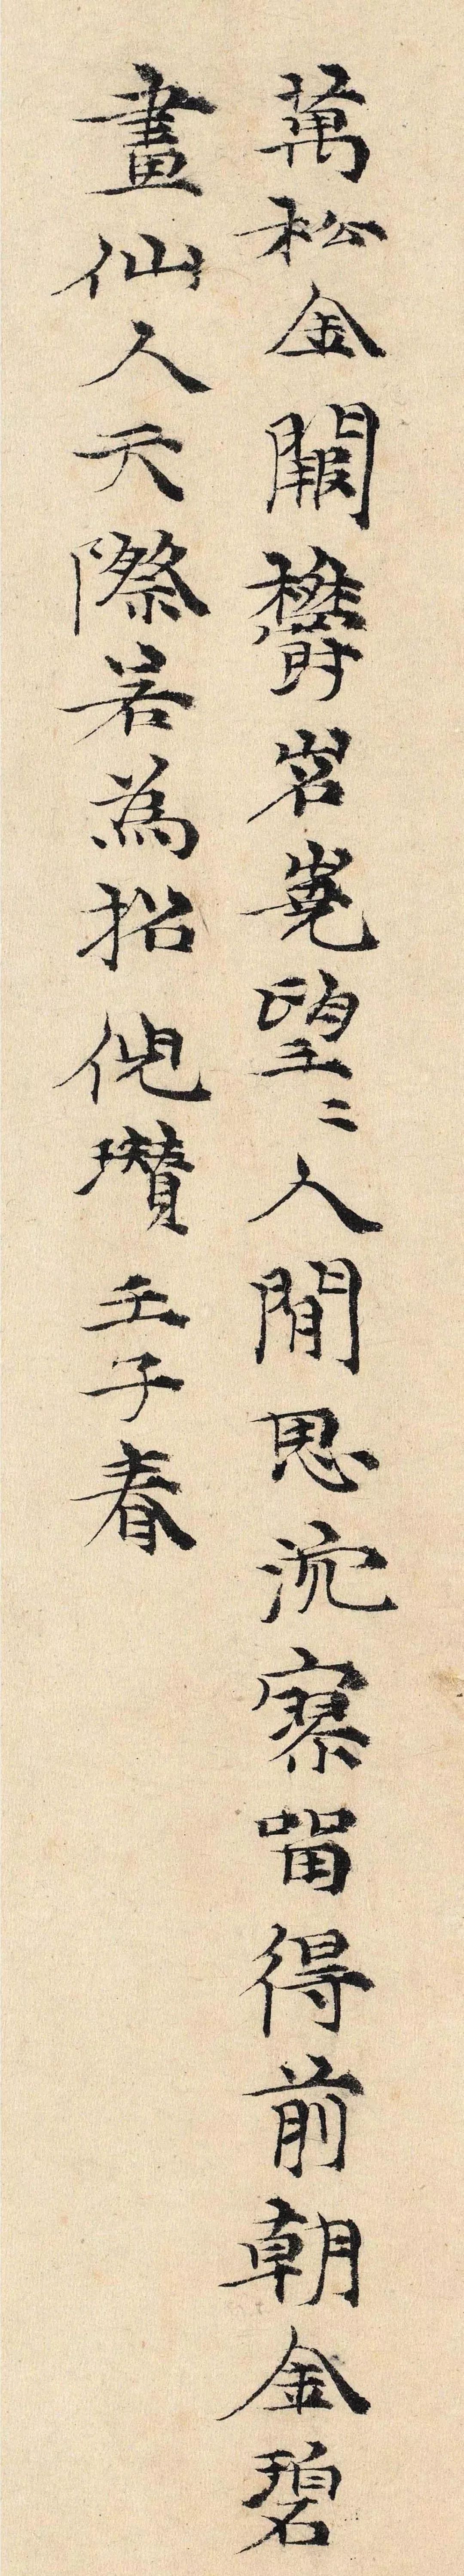 萬松金闕鬱岧嶤望〻人閒思泬寥留得前朝金碧
畫仙人天際若為招倪瓚壬子春